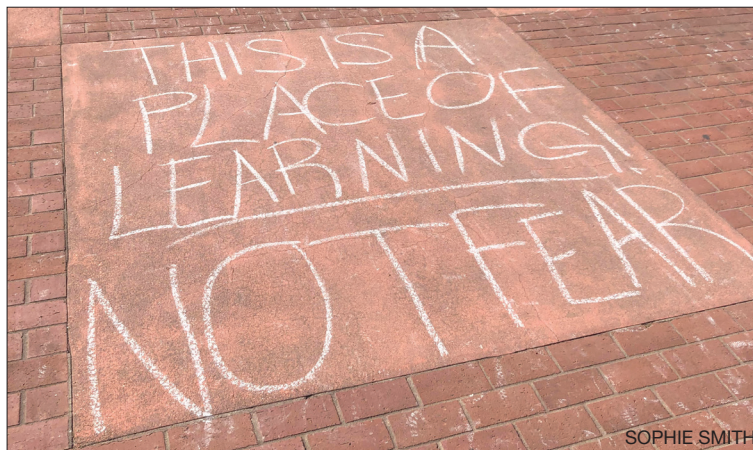 THIS IS A
PLACE OF
LEARNING!
NOT FEAR
SOPHIE SMITH